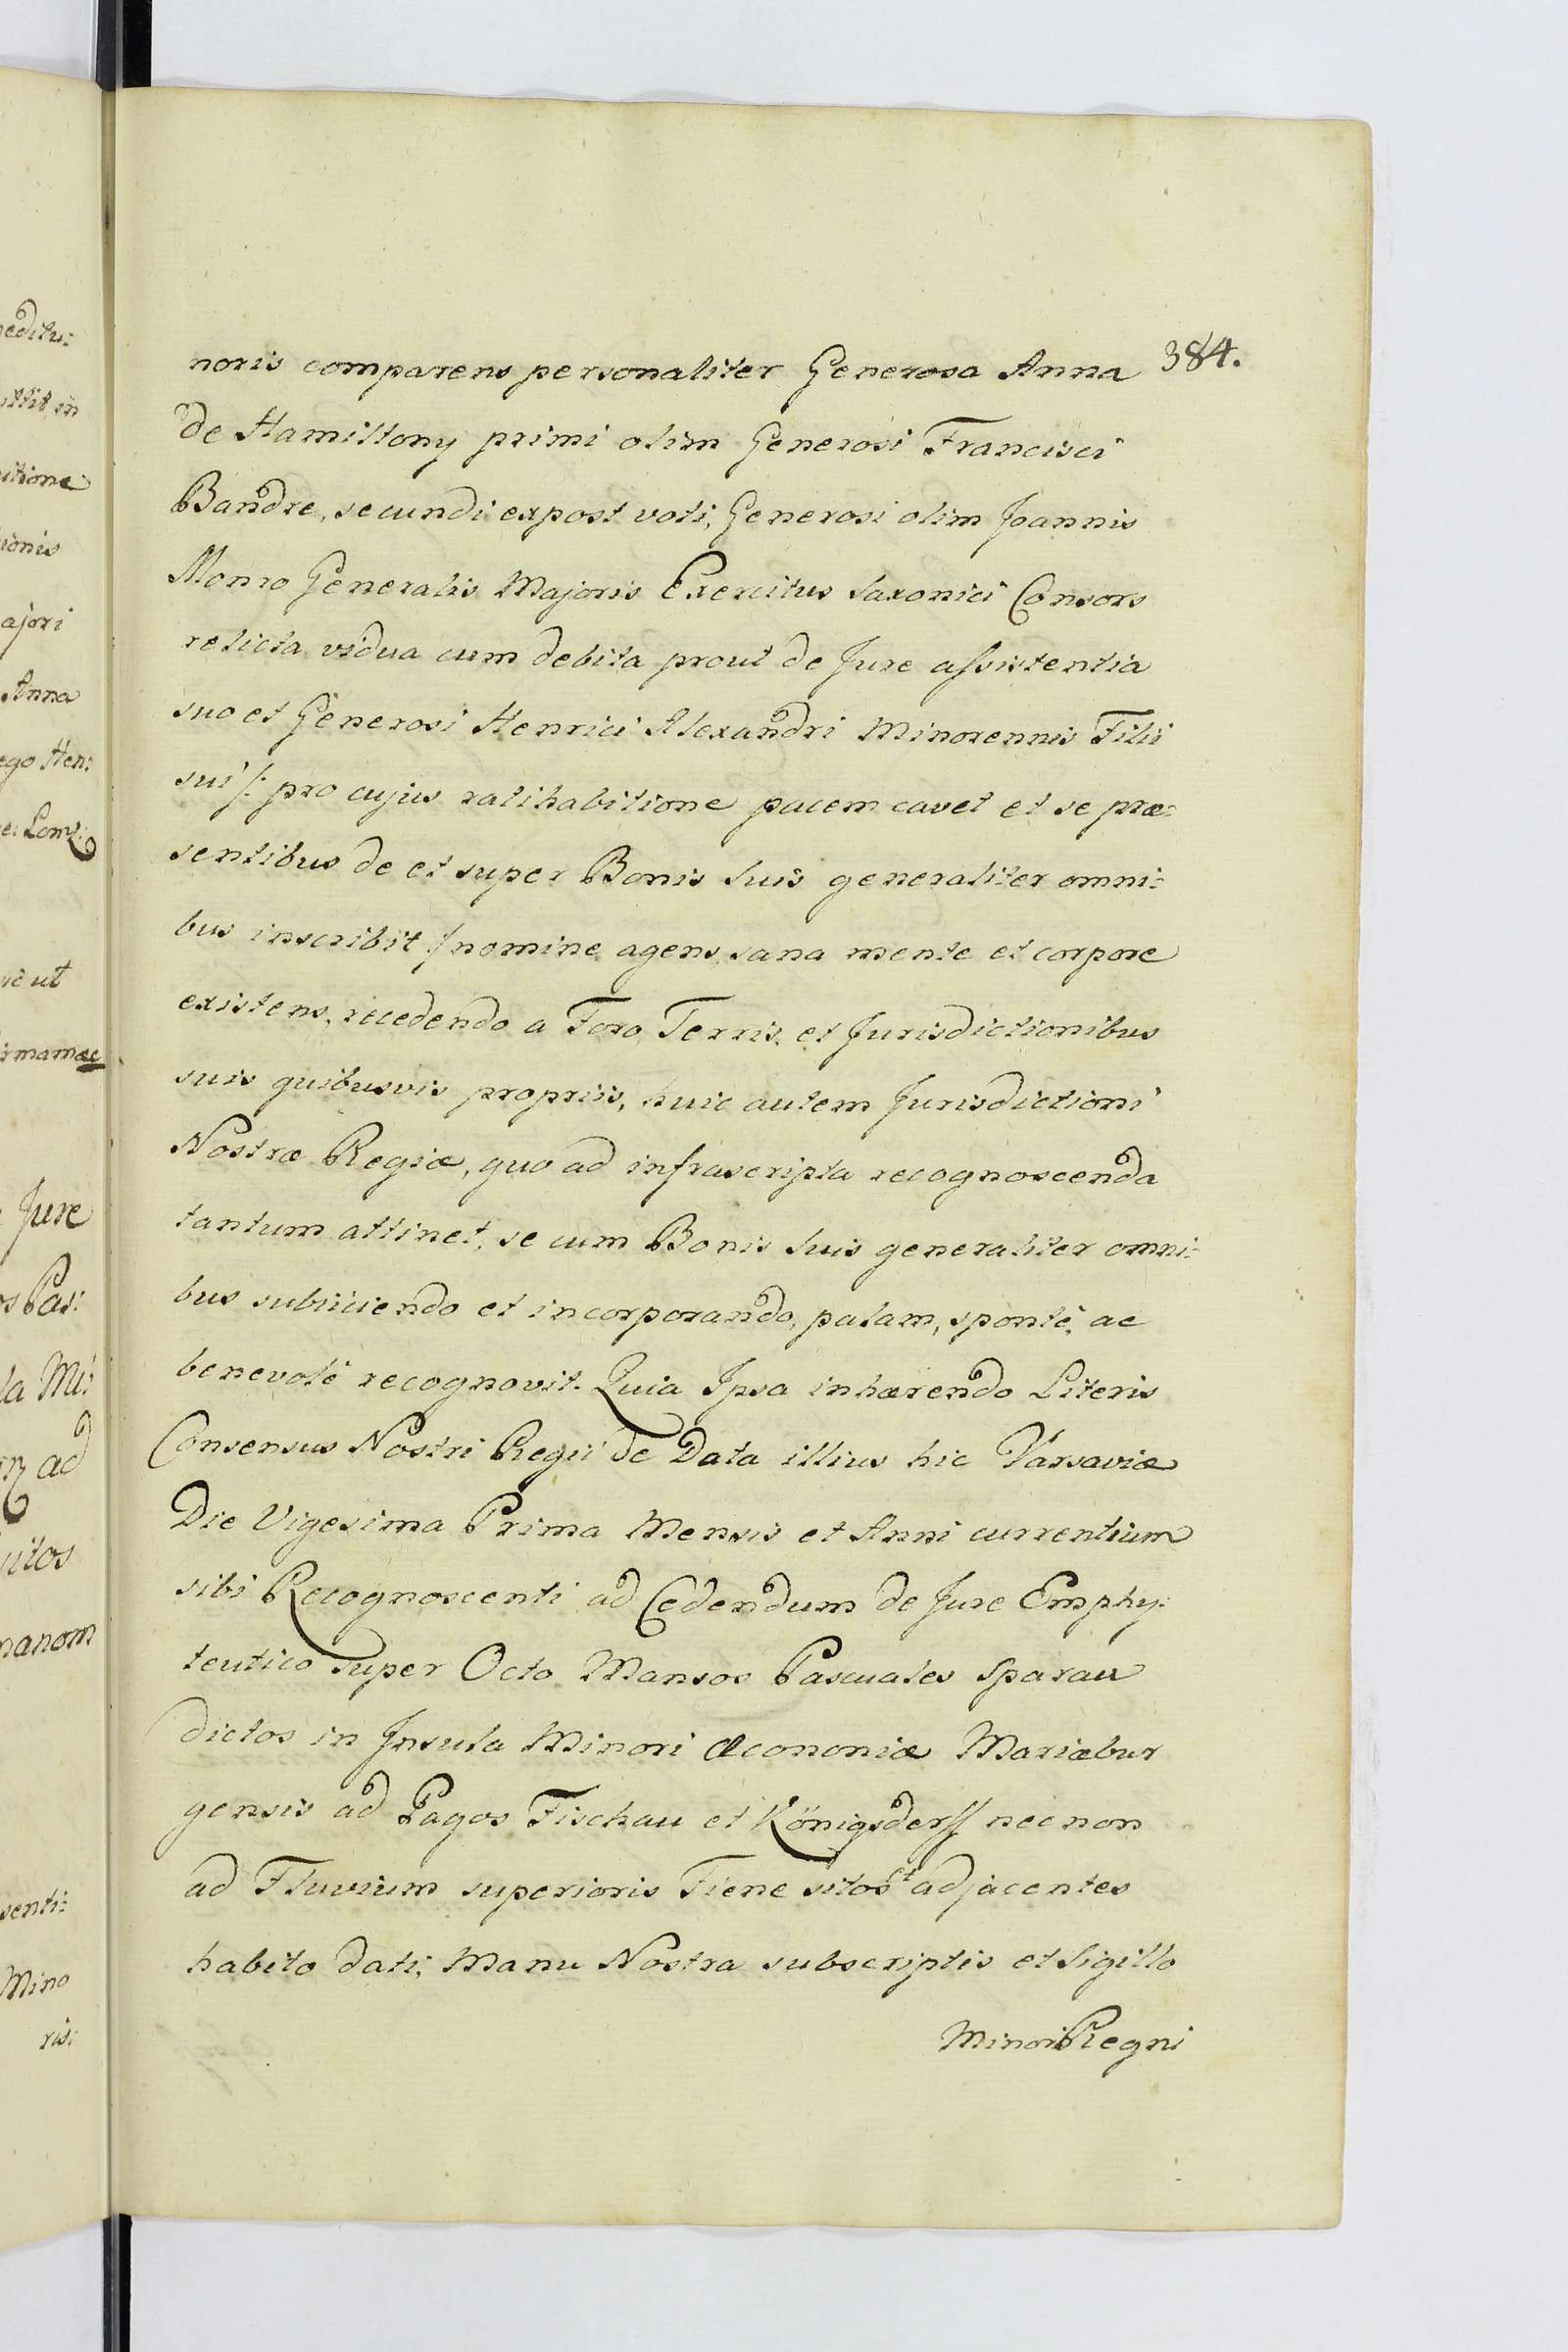 384.
noris comparens personaliter Generosa Anna
de Hamiltony primi olim Generosi Francisci
Bandre, secundi expost voti, Generosi olim Joannis
Monro Generalis Majoris Exercitus Saxonici Consors
relicta vidua cum debita prout de Jure assistentia
suo et Generosi Henrici Alexandri Minorennis Filii
sui /: pro cujus ratihabitione pacem cavet et se præ:
sentibus de et super Bonis suis generaliter omni:
bus inscribit :/ nomine agens, sana mente et corpore
existens, recedendo a Foro, Terris, et Jurisdictionibus
suis quibusvis propriis, huic autem Jurisdictioni
Nostræ Regiæ, quo ad infrascripta recognoscenda
tantum attinet, se cum Bonis suis generaliter omni:
bus subiiciendo et incorporando, palam, sponte, ac
benevole recognovit. Quia Ipsa inhærendo Literis
Consensus Nostri Regii de Data illius hic Varsaviæ
Die Vigesima Prima Mensis et Anni currentium
sibi Recognoscenti ad Cedendum de Jure Emphy:
teutico super Octo Mansos Pascuales Sparau
dictos in Insula Minori Œconomiæ Mariæbur
gensis ad Pagos Fischau et Königsderff nec non
ad Fluvium superioris Tiene sitos et adjacentes
habito dati, Manu Nostra subscriptis et Sigillo
Minori Regni
neditu:
ittit in
itione
tionis
ajori
Anna
ego Hen:
ve ut
Jure
os Pas:
la Mi:
ad
uitos
nanom
senti:
Mino
ris: